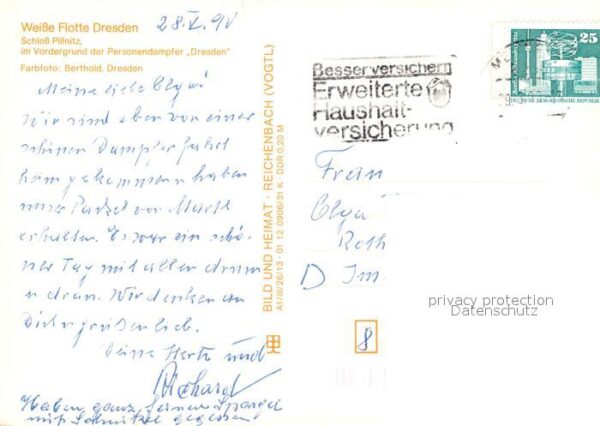 Weiße Flotte Dresden
Schloß Pillnitz,
im Vordergrund der Personendampfer „Dresden"
Farbfoto: Berthold, Dresden
28.V.90
Meine liebe Olga!
Wir sind eben von einer
schönen Dampferfahrt
heimgekommen haben
unser vom Markt
erhalten. Es war ein schö-
ner Tag mit allem drum
u dran. Wir denken an
Dich grüßen lieb.
Deine Herta und
Richard
Haben ganz Spargel
mit Schnitzel gegessen!
BILD UND HEIMAT · REICHENBACH (VOGTL)
A1/III/26/13 01 12 0906/31 K DDR 0,20 M
Besser versichern
Erweiterte
Haushalt-
versicherung
25
DEUTSCHE DEMOKRATISCHE REPUBLIK
Frau
Olga
Roth
D Im
privacy protection
Datenschutz
8